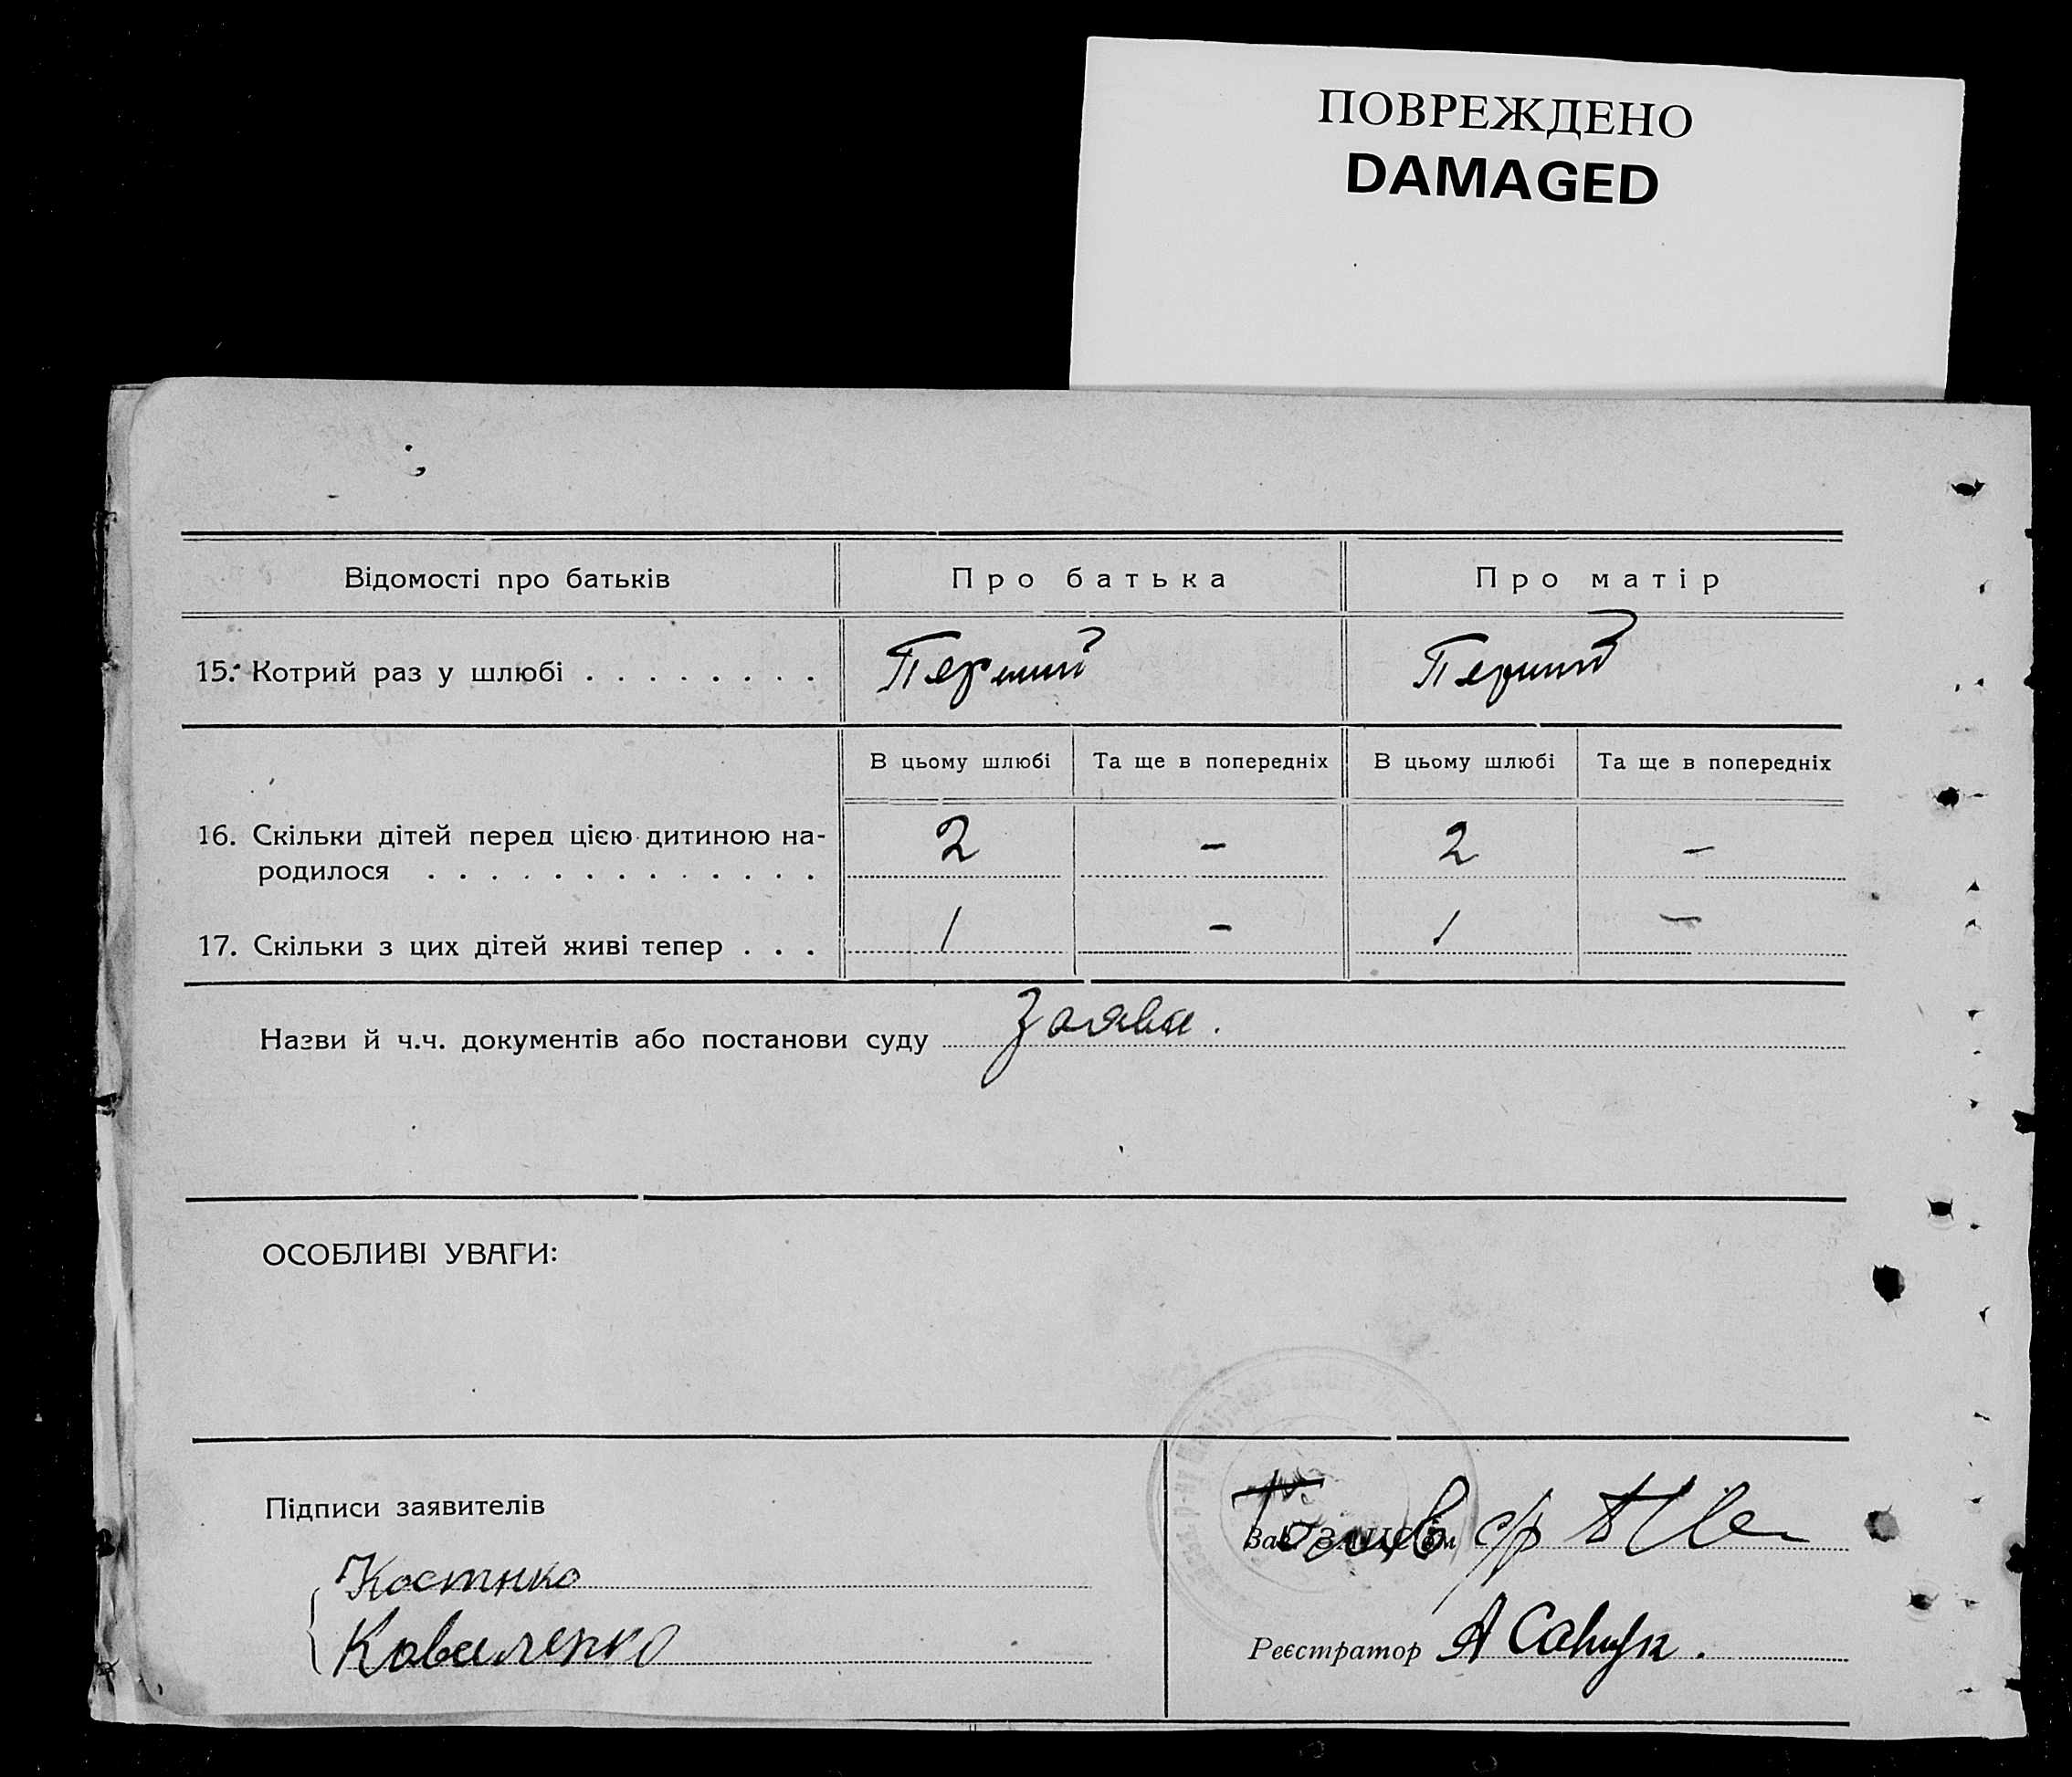 ПОВРЕЖДЕНО
DAMAGED
Відомості про батьків Про батька Про матір
15. Котрий раз у шлюбі . . . . . . . . Перший Перший
В цьому шлюбі Та ще в попередніх В цьому шлюбі Та ще в попередніх
16. Скільки дітей перед цією дитиною на-
родилося . . . . . . . . . . . . . . 2 - 2 -
17. Скільки з цих дітей живі тепер . . . 1 - 1 -
Назви й ч.ч. документів або постанови суду Заява.
ОСОБЛИВІ УВАГИ:
Підписи заявителів
Костнко
Коваленко
Зав. ЗАЦСʼом
Реєстратор А